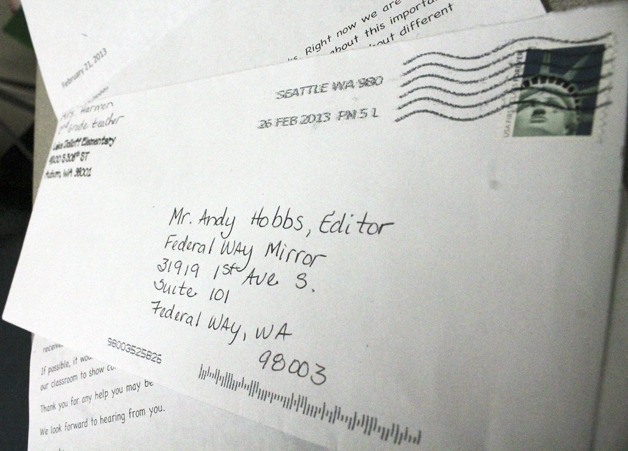 February 21, 2013
Right now we are
about this importa
out different
SEATTLE WA 980
26 FEB 2013 PM 5 L
Harmon
grade teacher
Elementary
Auburn, WA 98001
Mr. Andy Hobbs, Editor
Federal Way Mirror
31919 1st Ave S.
Suite 101
Federal Way, WA
98003
98003525826
If possible, it wou
our classroom to show
Thank you for any help you may be
We look forward to hearing from you.